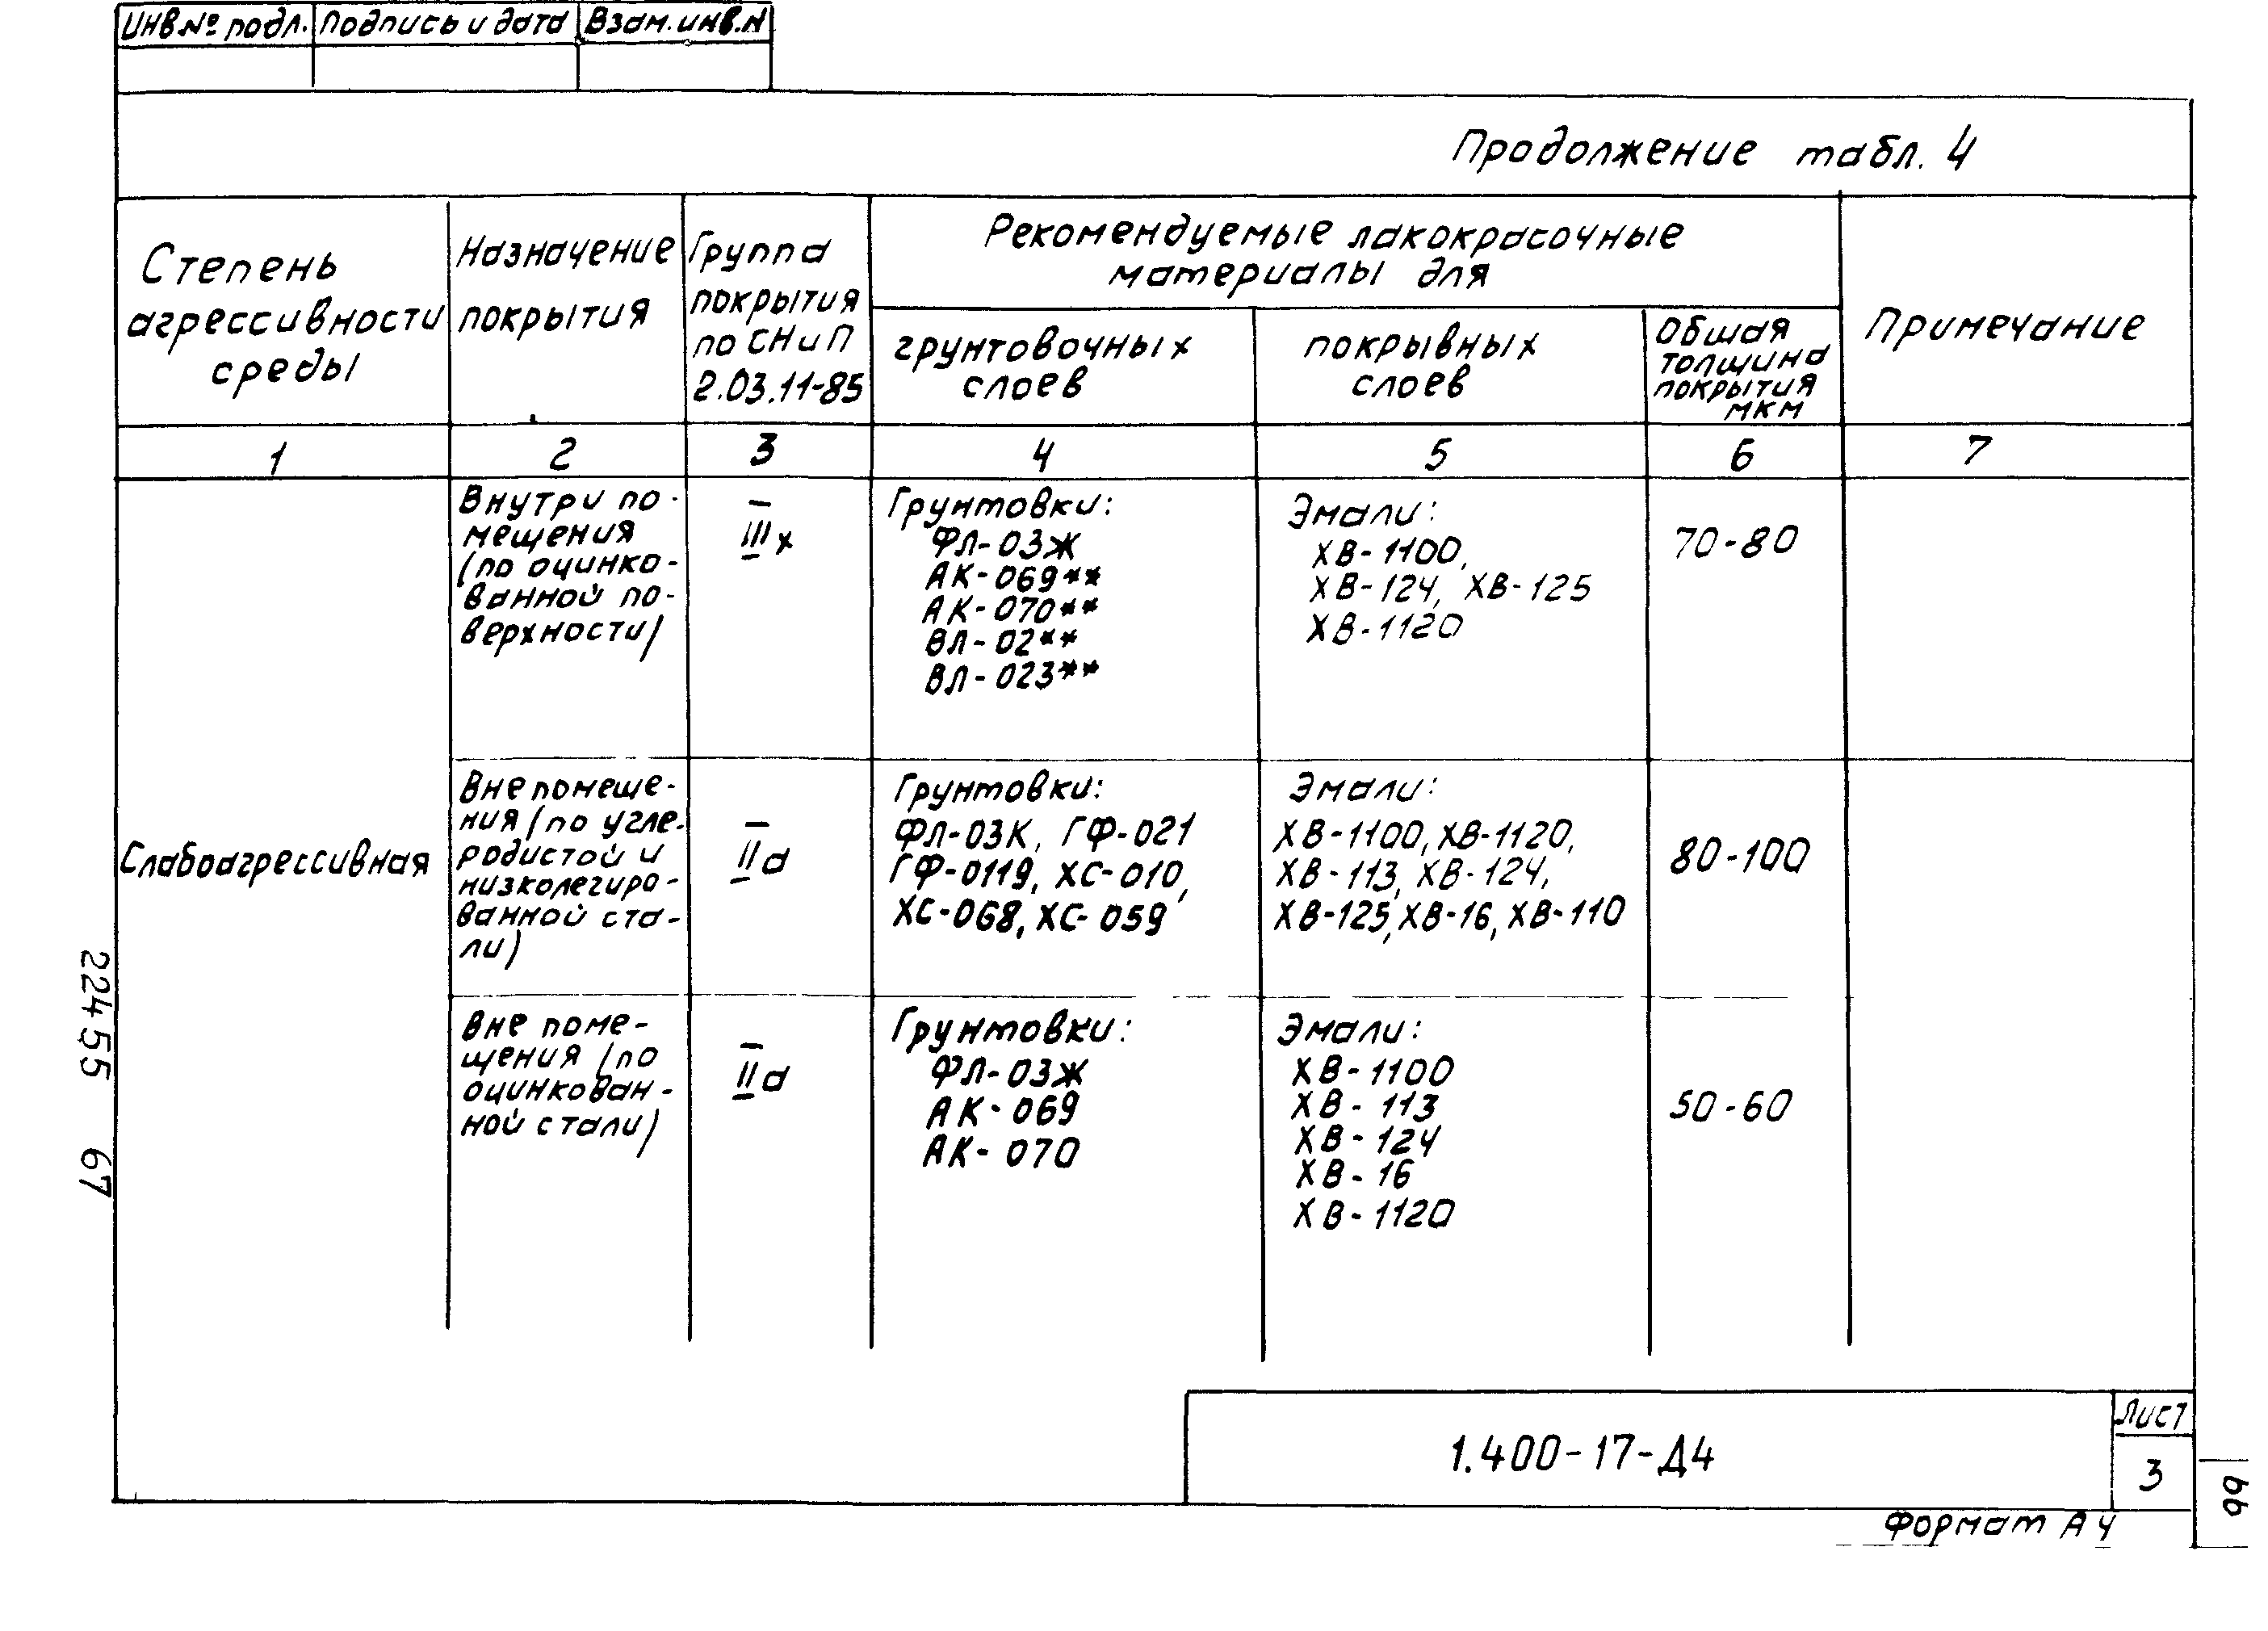 Инв № подл. Подпись и дата Взам. инв. N
Продолжение табл. 4
Степень
агрессивности
среды
Назначение
покрытия
Группа
покрытия
по СНиП
2.03.11-85
Рекомендуемые лакокрасочные
материалы для
грунтовочных
слоев
покрывных
слоев
Общая
толщина
покрытия
мкм
Примечание
1 2 3 4 5 6 7
Слабоагрессивная
Внутри по-
мещения
(по оцинко-
ванной по-
верхности)
IIIх
Грунтовки:
ФЛ-03Ж
АК-069**
АК-070**
ВЛ-02**
ВЛ-023**
Эмали:
ХВ-1100,
ХВ-124, ХВ-125
ХВ-1120
70-80
Вне помеще-
ния (по угле-
родистой и
низколегиро-
ванной ста-
ли)
IIа
Грунтовки:
ФЛ-03К, ГФ-021
ГФ-0119, ХС-010,
ХС-068, ХС-059
Эмали:
ХВ-1100, ХВ-1120,
ХВ-113, ХВ-124,
ХВ-125, ХВ-16, ХВ-110
80-100
Вне поме-
щения (по
оцинкован-
ной стали)
IIа
Грунтовки:
ФЛ-03Ж
АК-069
АК-070
Эмали:
ХВ-1100
ХВ-113
ХВ-124
ХВ-16
ХВ-1120
50-60
22455 67
1.400-17-Д4
Лист
3
Формат А4
66